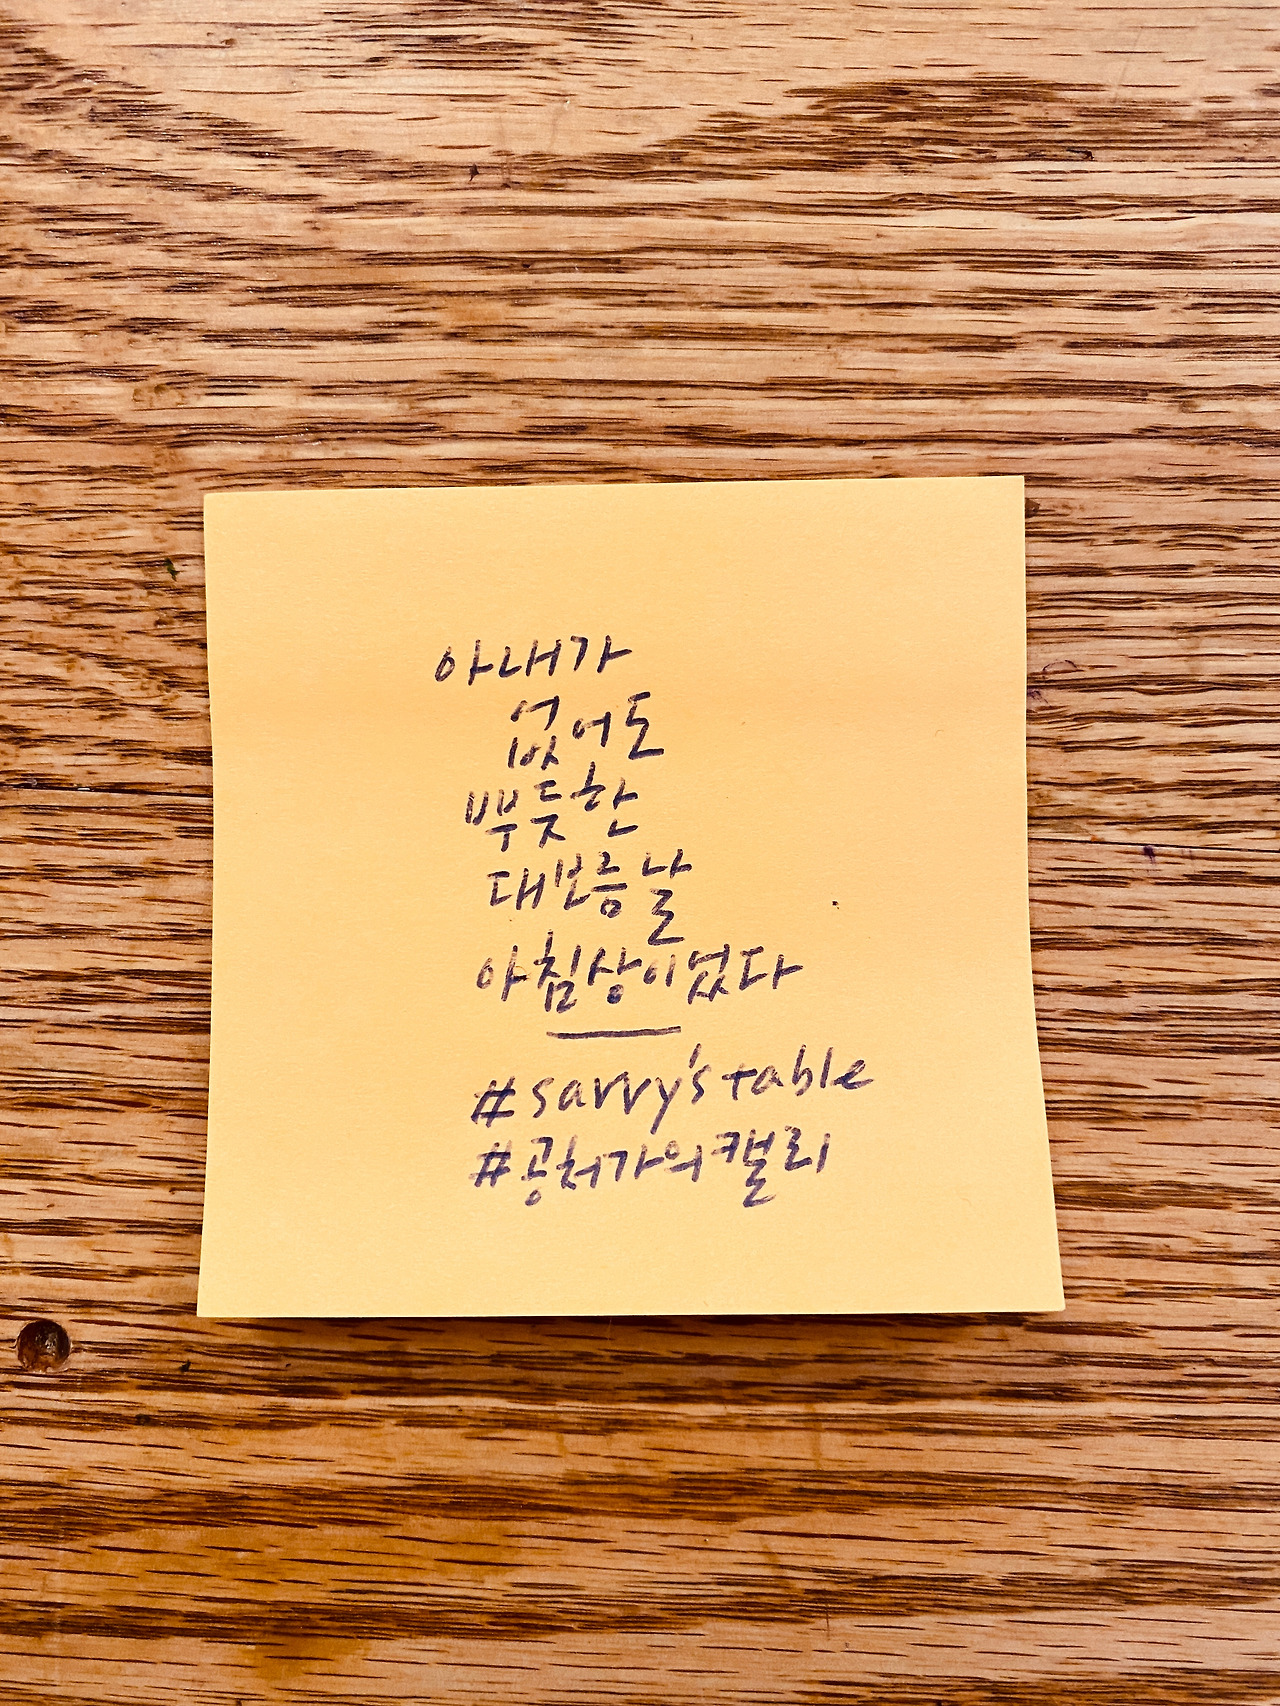 아내가
없어도
뿌듯한
대보름날
아침상이었다
#savvy's table
#공처가의캘리